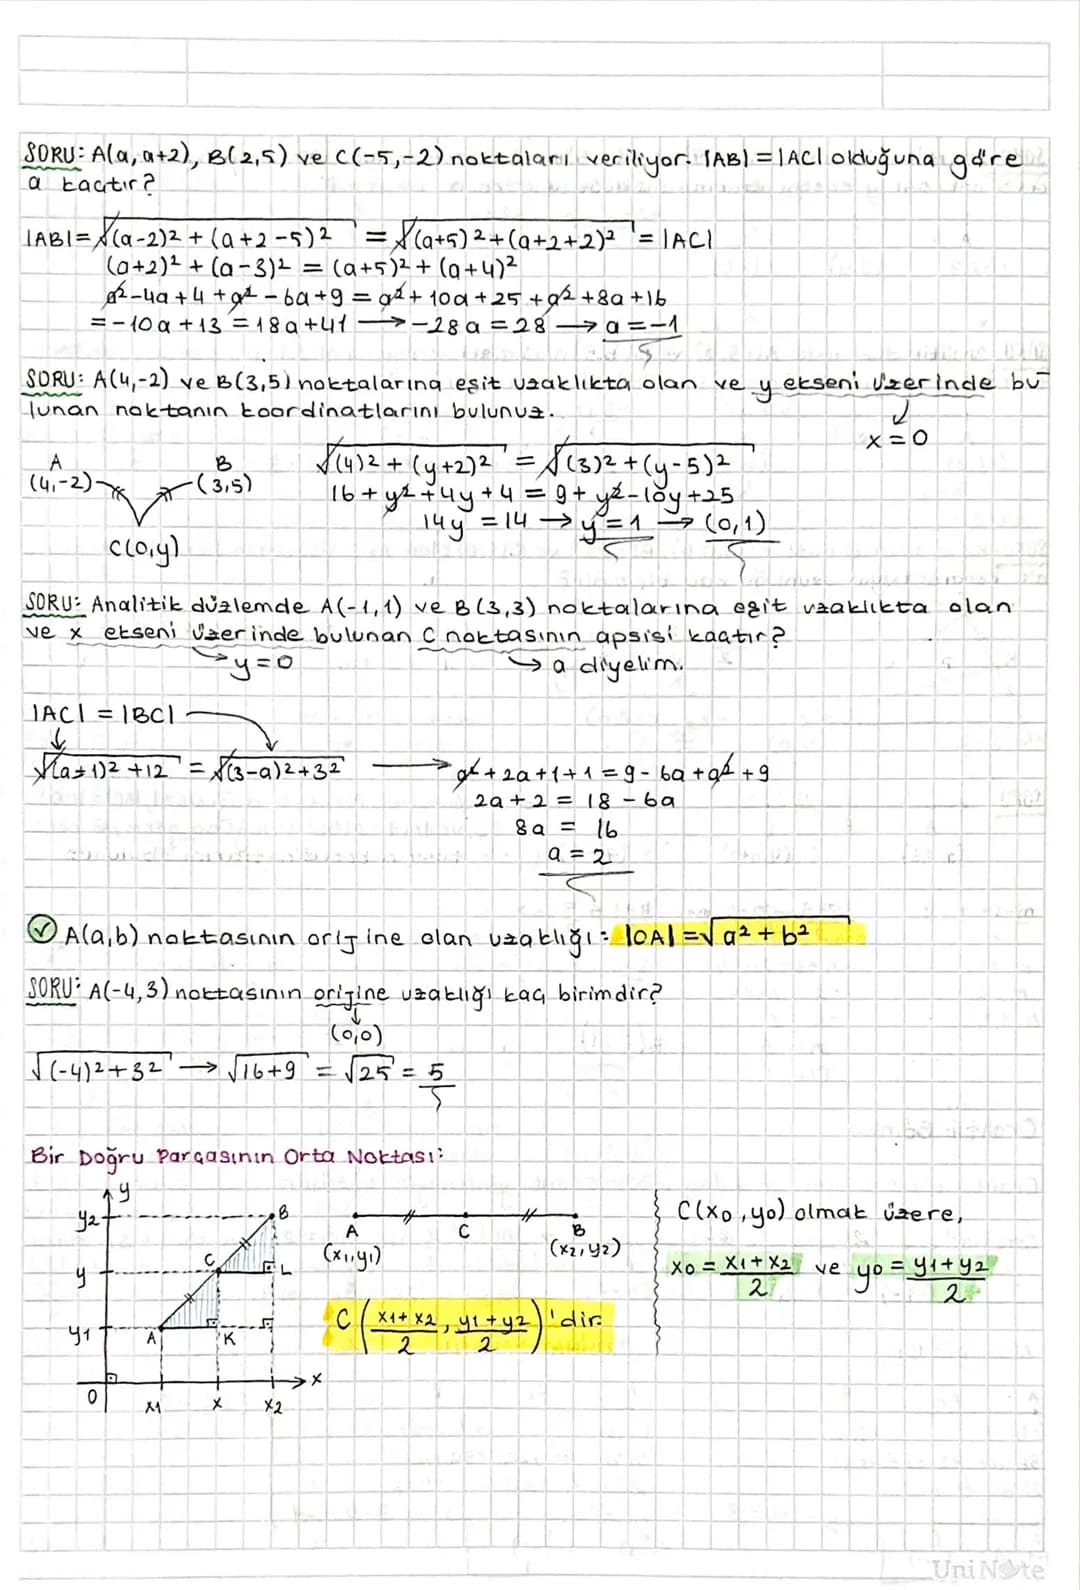 SORU: A(a, a+2), B(2,5) ve C(-5,-2) noktaları veriliyor. |AB| = |AC| olduğuna göre
a kaçtır?
|AB| = √(a-2)2 + (a+2-5)2 = √(a+5)2 + (a+2+2)² = |AC|
(a+2)² + (a-3)² = (a+5)² + (a+4)²
a²-4a+4+a²-6a+9 = a²+10a+25+a²+8a+16
= -10a+13 = 18a+41 → -28a = 28 → a = -1
SORU: A(4,-2) ve B(3,5) noktalarına eşit uzaklıkta olan ve y ekseni üzerinde bu
lunan noktanın koordinatlarını bulunuz.
x = 0
A B
(4,-2) (3,5)
C(0,y)
√(4)2 + (y+2)2 = √(3)2 + (y-5)2
16 + y² + 4y + 4 = 9 + y² - 10y + 25
14y = 14 → y = 1 → (0,1)
SORU: Analitik düzlemde A(-1,1) ve B(3,3) noktalarına eşit uzaklıkta olan
ve x ekseni üzerinde bulunan C noktasının apsisi kaçtır?
→ y = 0 → a diyelim.
|AC| = |BC|
√(a+1)2 + 12 = √(3-a)2 + 32 → a² + 2a + 1 + 1 = 9 - 6a + a² + 9
2a + 2 = 18 - 6a
8a = 16
a = 2
✓ A(a,b) noktasının orijine olan uzaklığı: |OA| = √a² + b²
SORU: A(-4,3) noktasının orijine uzaklığı kaç birimdir?
(0,0)
√(-4)2 + 32 → √16+9 = √25 = 5
Bir Doğru Parçasının Orta Noktası:
y
y2 B
C
y L
y1 A K
0 x1 x x2 x
A C B
(x1,y1) (x2,y2)
C (x1+x2/2, y1+y2/2) 'dir.
C(x0,y0) olmak üzere,
x0 = x1+x2/2 ve y0 = y1+y2/2
UniNote